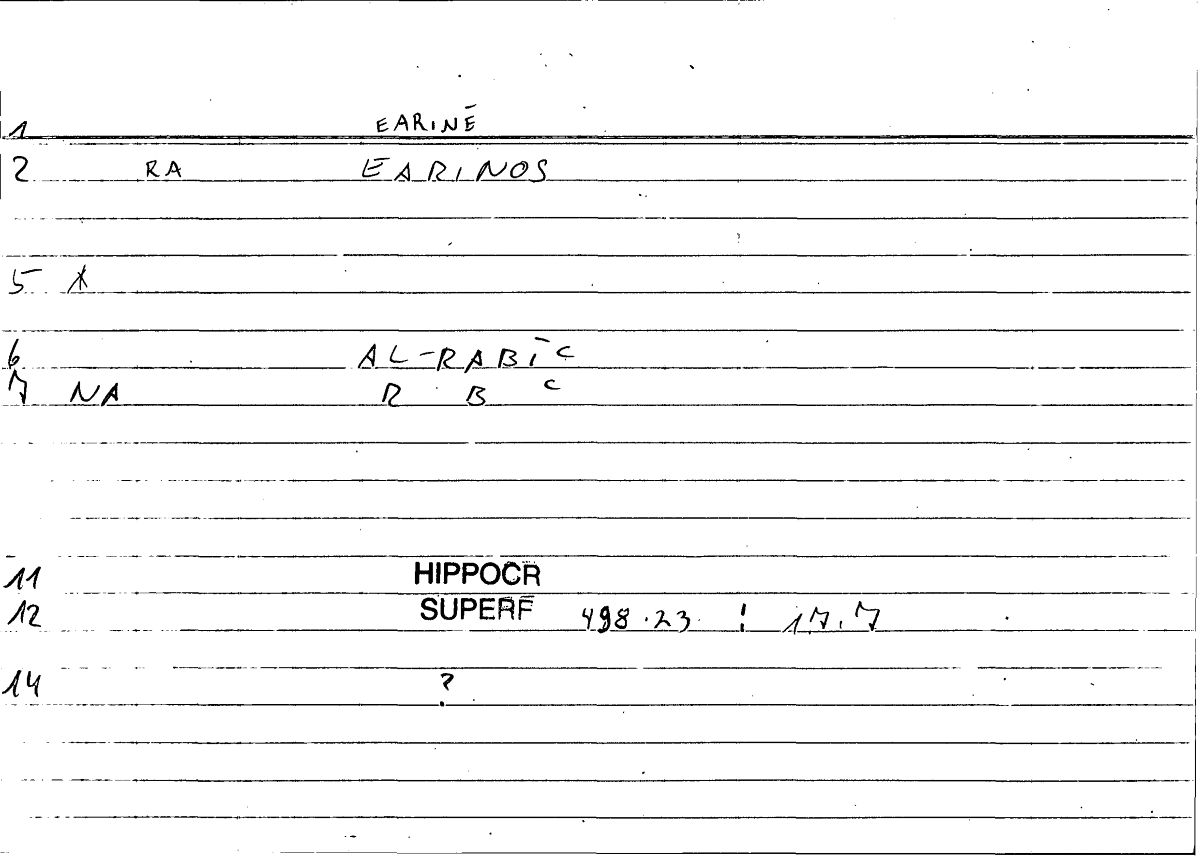 1 EARINĒ
2 RA EARINOS
5 *
6 AL-RABĪ ͨ
7 NA R B ͨ
11 HIPPOCR
12 SUPERF 498.23 : 17.7
14 ?